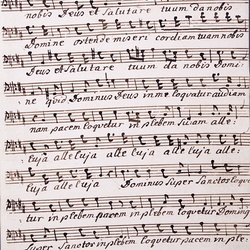 nobis Deus et Salutare tuum da nobis
Domine ostende miseri cordiam tuam nobis
Deus et Salutare tuum da nobis Domi:
ne quid Dominus Deus in me loquatur audiam
nam pacem loquetur in plebem suam alle:
luja alle luja alle luja alle luja alle:
luja alleluja Dominus super Sanctos loque
tur in plebem pacem in plebem loquetur Domin
super Sanctos in plebem loquetur pacem in ple